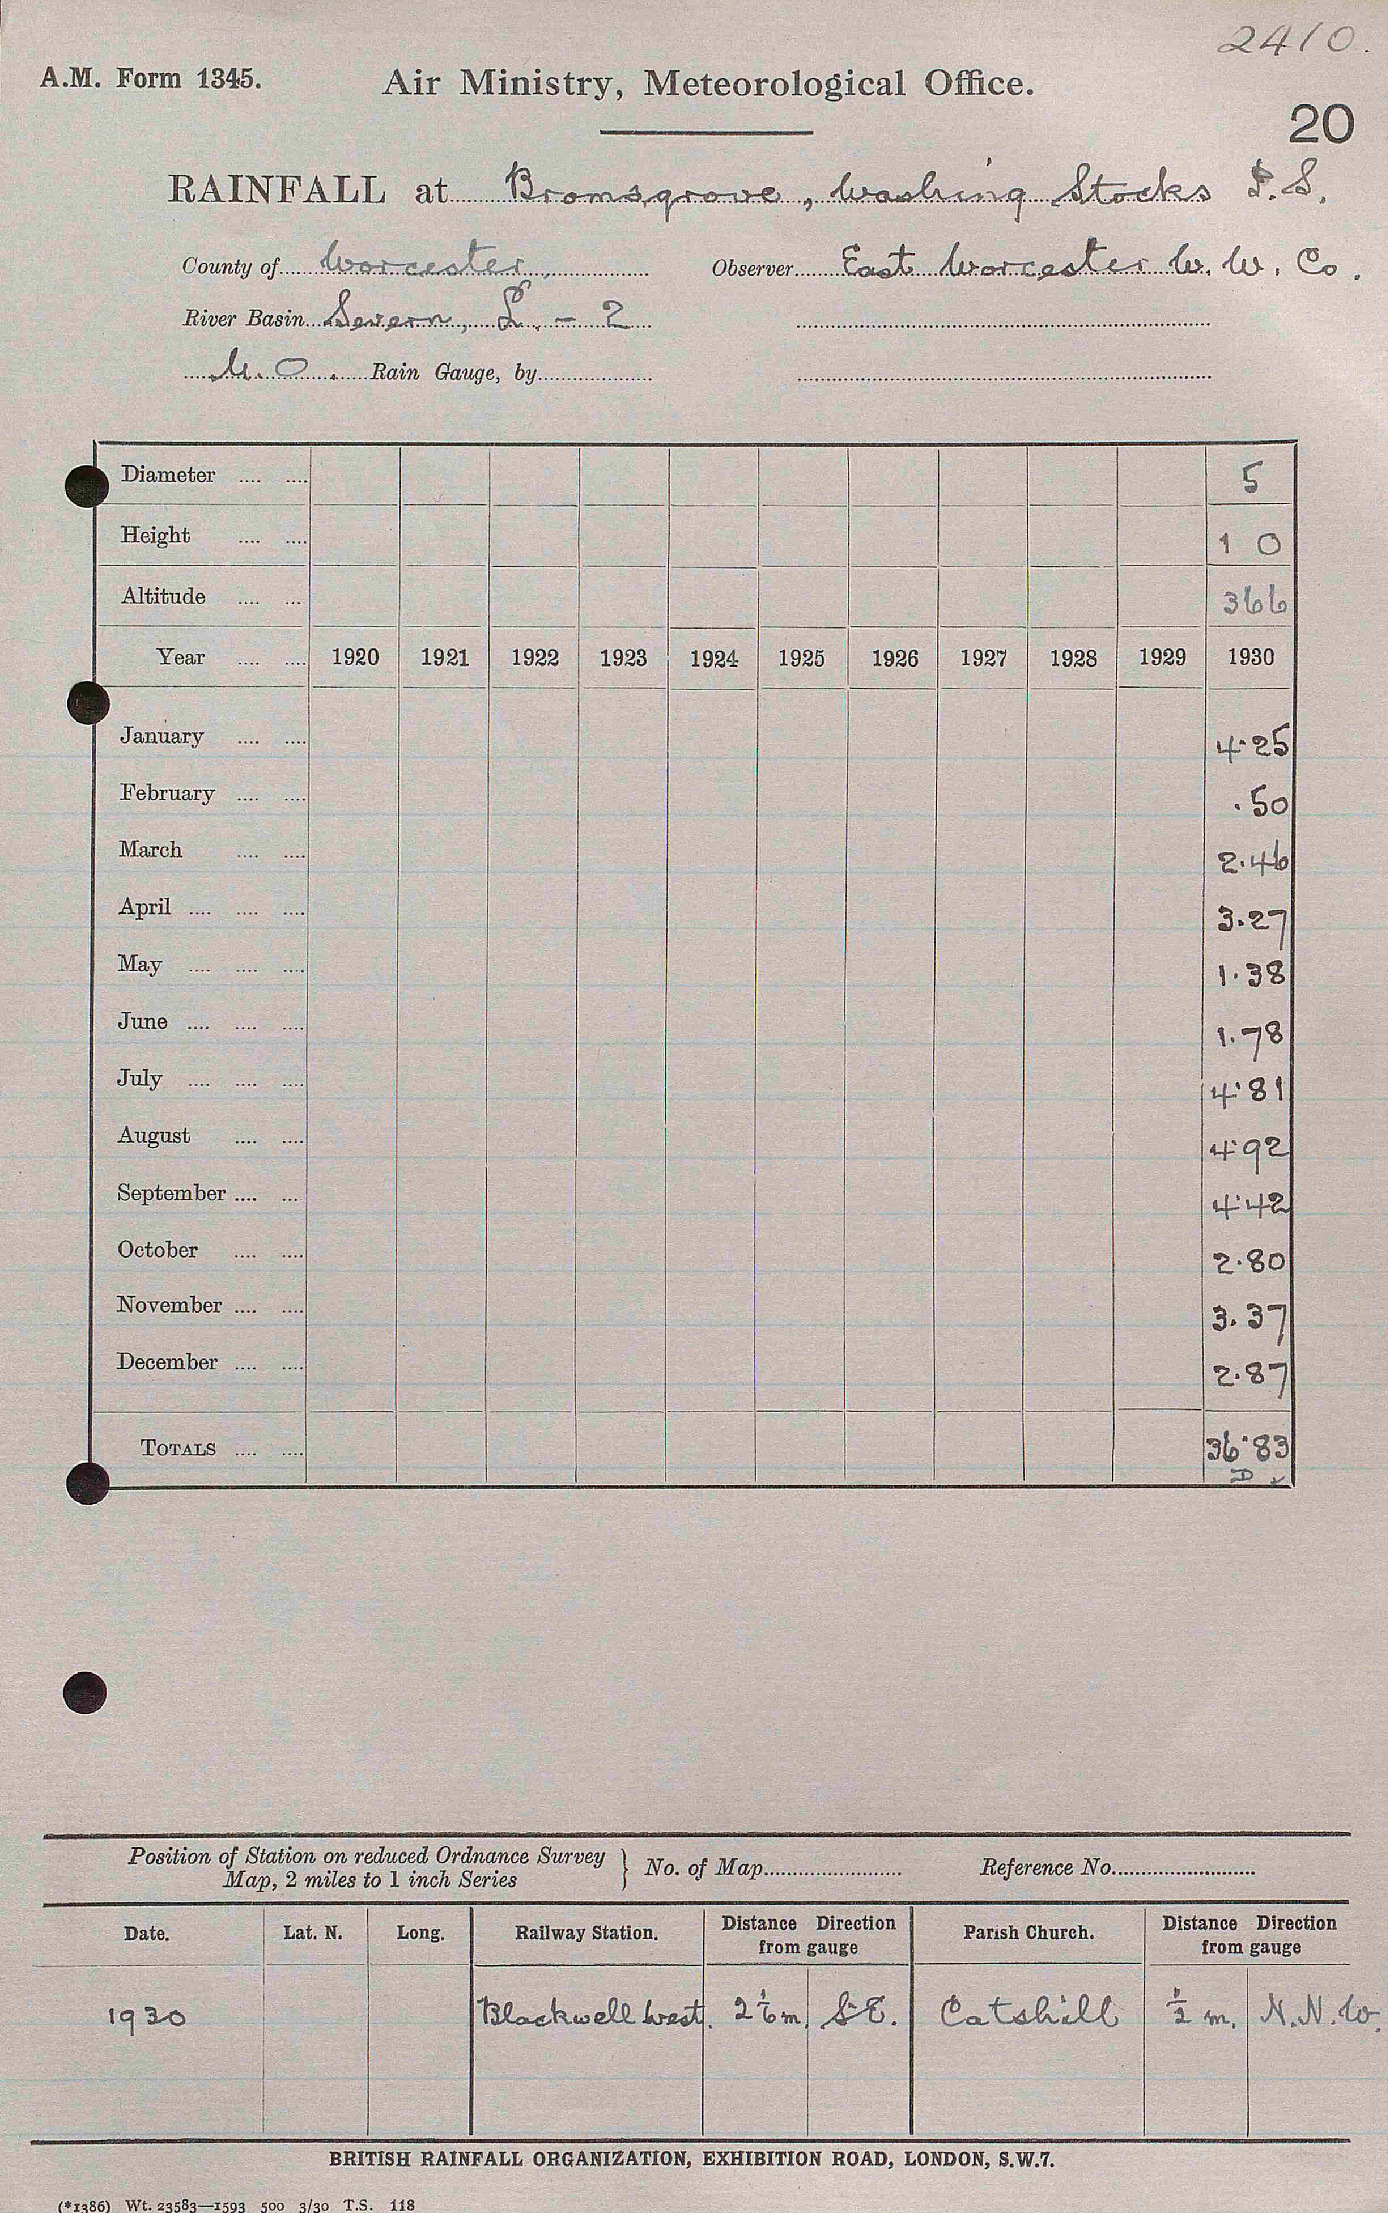 2410.
A.M. Form 1345. Air Ministry, Meteorological Office.
20
RAINFALL at Bromsgrove, Washing Stocks P.S.
County of Worcester. Observer East Worcester W. W. Co.
River Basin Severn, L. - 2
M.O. Rain Gauge, by
Diameter .... .... 5
Height .... .... 1 0
Altitude .... .... 366
Year .... .... 1920 1921 1922 1923 1924 1925 1926 1927 1928 1929 1930
January .... .... 4.25
February .... .... .50
March .... .... 2.46
April .... .... .... 3.27
May .... .... .... 1.38
June .... .... .... 1.78
July .... .... .... 4.81
August .... .... 4.92
September .... .... 4.42
October .... .... 2.80
November .... .... 3.37
December .... .... 2.87
TOTALS .... .... 36.83
D
Position of Station on reduced Ordnance Survey
Map, 2 miles to 1 inch Series } No. of Map Reference No.
Date. Lat. N. Long. Railway Station. Distance Direction from gauge Parish Church. Distance Direction from gauge
1930 Blackwell West. m. S.E. Catshill ½ m. N.N.W.
BRITISH RAINFALL ORGANIZATION, EXHIBITION ROAD, LONDON, S.W.7.
(*1386) Wt. 23583—1593 500 3/30 T.S. 118